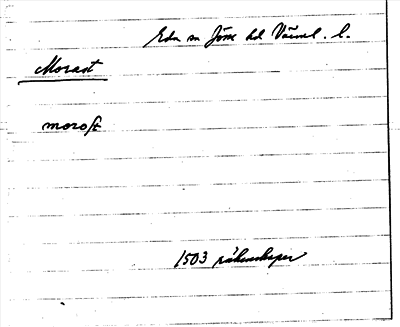 Eda sn Jösse hd Värml. l.
Morast
morast
1503 räkenskaper